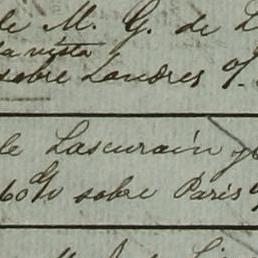 de M. G. de L
la vista
sobre Londres
de Lascurain y
60 d/v sobre Paris